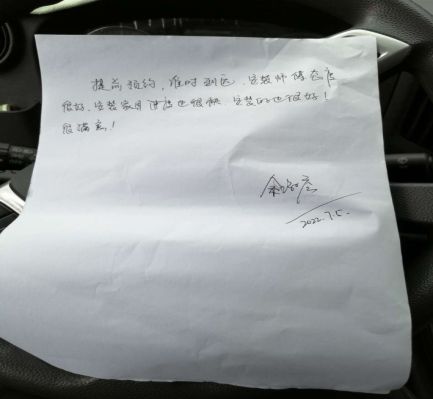 提前预约，准时到达，安装师傅态度
很好，安装家具速度也很快，安装的也很好！
很满意！
2022.7.5.